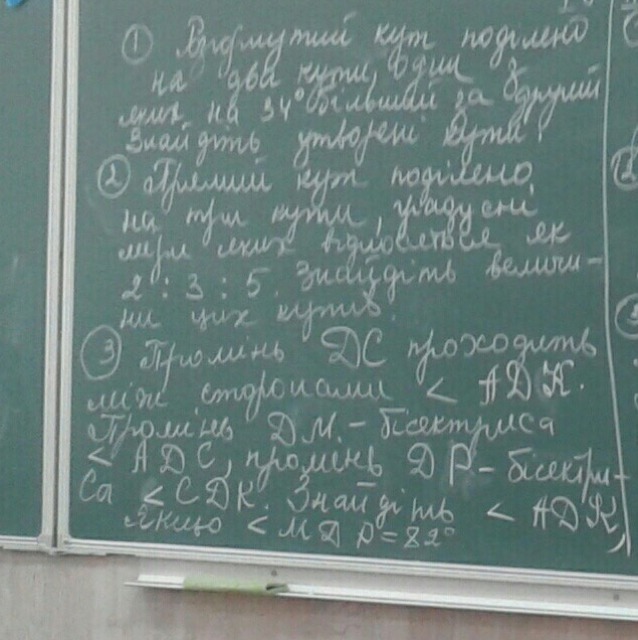 1 Розгорнутий кут поділено
на два кути, один з
яких на 34° більший за другий
Знайдіть утворені кути.
2 Прямий кут поділено
на три кути, градусні
міри яких відносяться як
2 : 3 : 5. Знайдіть величи-
ни цих кутів.
3 Промінь DC проходить
між сторонами < АDК.
Промінь DM. - бісектриса
< АDC, промінь DP - бісектри-
са < СDК. Знайдіть < АDК,
якщо < МDP = 82°